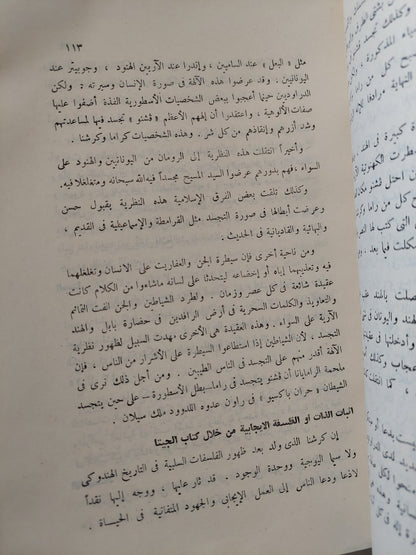 ١١٣
مثل « البعل » عند الساميين ، وإندرا عند الآريين الهنود ، وجوبيتر عند
اليونانيين . وقد عرضوا هذه الآلهة في صورة الإنسان وسيرته ؛ ولكن
الدراوديين حينما أعجبوا ببعض الشخصيات الأسطورية الفذة أضفوا عليها
صفات الألوهية ، واعتقدوا أن إلههم الأعظم « فشنو » تجسد فيها لمساعدتهم
وشد أزرهم وإنقاذهم من كل شر . وهذه الشخصيات كراما وكرشنا .
وأخيراً انتقلت هذه النظرية إلى الرومان من اليونانيين والهنود على
السواء ، فهم بدورهم عرضوا السيد المسيح مجسداً فيه الله سبحانه ومتغلغلا فيه.
وكذلك تلقت بعض الفرق الإسلامية هذه النظرية بقبول حسن
وعرضت أبطالها في صورة التجسد مثل القرامطة والإسماعيلية في القديم ،
والبهائية والقاديانية في الحديث .
ومن ناحية أخرى فإن سيطرة الجن والعفاريت على الانسان وتغلغلهما
فيه وتعذيبهما إياه أو إخضاعه ليتحدثا على لسانه ماشاءوا من الكلام كانت
عقيدة شائعة في كل عصر وزمان . ولطرد الشياطين والجن ألفت التمائم
والتعاويذ والكلمات السحرية في أرض الرافدين في حضارة بابل والهند
الآرية على السواء . وهذه العقيدة هي الأخرى مهدت السبيل لظهور نظرية
التجسد ، لأن الشياطين إذا استطاعوا السيطرة على الأشرار من الناس ، فإن
الآلهة أقدر منهم على التجسد في الناس الطيبين . ومن أجل ذلك نرى في
ملحمة الرامايانا أن فشنو يتجسد في راما - بطل الأسطورة - على حين يتجسد
الشيطان « حران باكسيو » في راون عدوه اللدود ملك سيلان .
اثبات الذات او الفلسفة الايجابية من خلال كتاب الجيتا
إن كرشنا الذي ولد بعد ظهور الفلسفات السلبية في التاريخ الهندوكي
ولا سيما اليوجية ووحدة الوجود . قد ثار عليها ، ووجه إليها نقداً
لاذعا ودعا الناس إلى العمل الإيجابي والجهود المتفانية في الحياة .